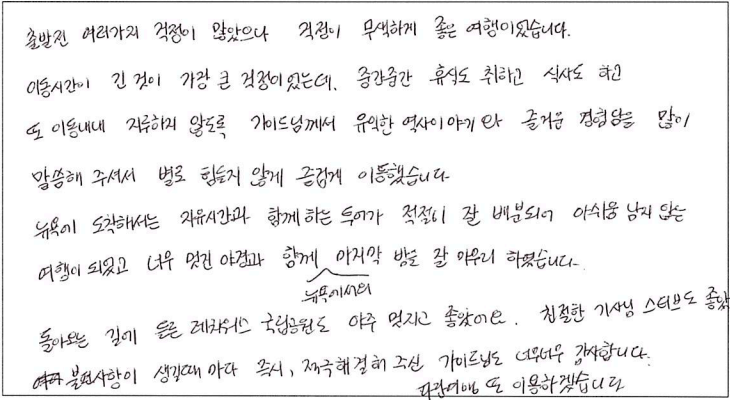 출발전 여러가지 걱정이 많았으나 걱정이 무색하게 좋은 여행이었습니다.
이동시간이 긴 것이 가장 큰 걱정이었는데, 중간중간 휴식도 취하고 식사도 하고
또 이동내내 지루하지 않도록 가이드님께서 유익한 역사이야기와 즐거운 경험담을 많이
말씀해 주셔서 별로 힘들지 않게 즐겁게 이동했습니다
뉴욕에 도착해서는 자유시간과 함께하는 투어가 적절히 잘 배분되어 아쉬움 남지 않는
여행이 되었고 너무 멋진 야경과 함께 마지막 밤을 잘 마무리 하였습니다.
뉴욕에서의
돌아오는 길에 들른 레치워스 국립공원도 아주 멋지고 좋았어요. 친절한 기사님 스티브도 좋았
불편사항이 생길때 마다 즉시, 적극해결해 주신 가이드님도 너무너무 감사합니다.
다른여행 또 이용하겠습니다